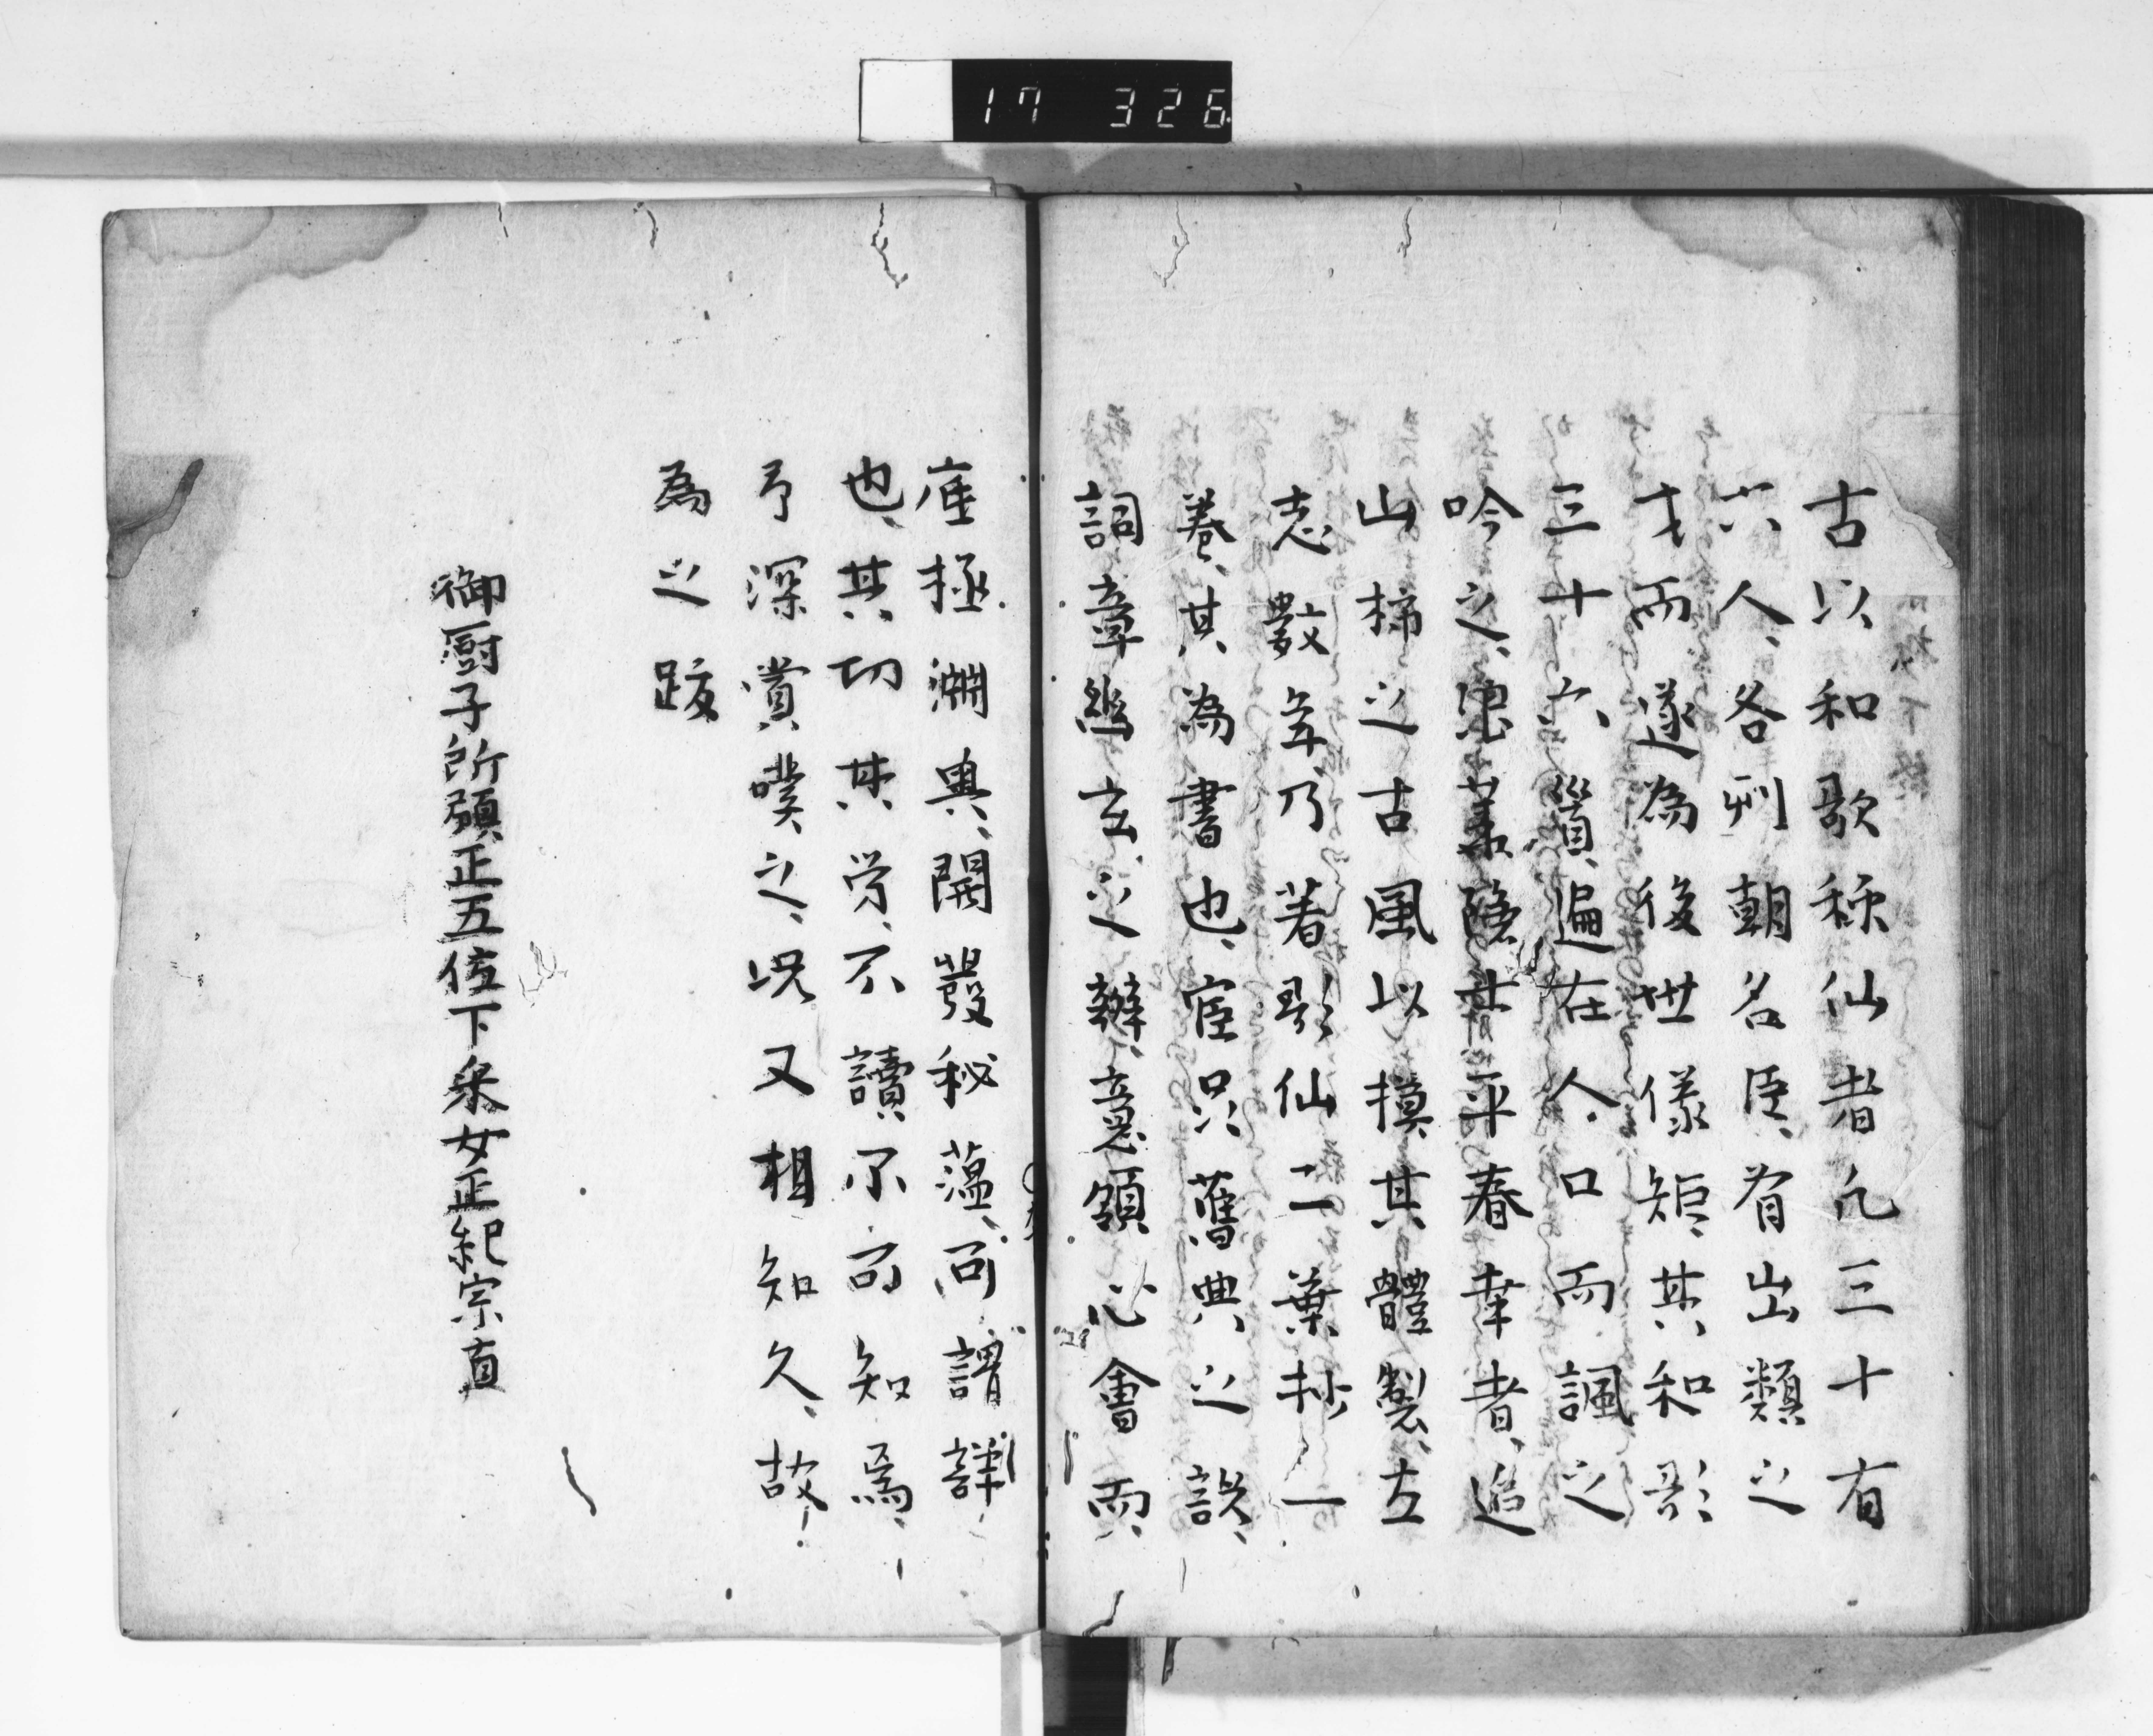 17 326
古以和歌称仙者凡三十有
六人、各列朝名臣、有出類之
才而遂為後世儀矩、其和歌
三十六首、遍在人口而諷之
吟之、鬼蒁隠士平春幸者、追
山柿之古風以摸其體製、左
志數年、乃著歌仙二葉抄一
巻、其為書也、宦只舊典之誤、
詞章幽玄之辨、意領心會而、
座極淵奥、開發秘蘊、可謂詳
也、其切其労、不讀不可知焉、
予深賞嘆之、况又相知久、故
為之跋
御厨子所預正五位下采女正紀宗直